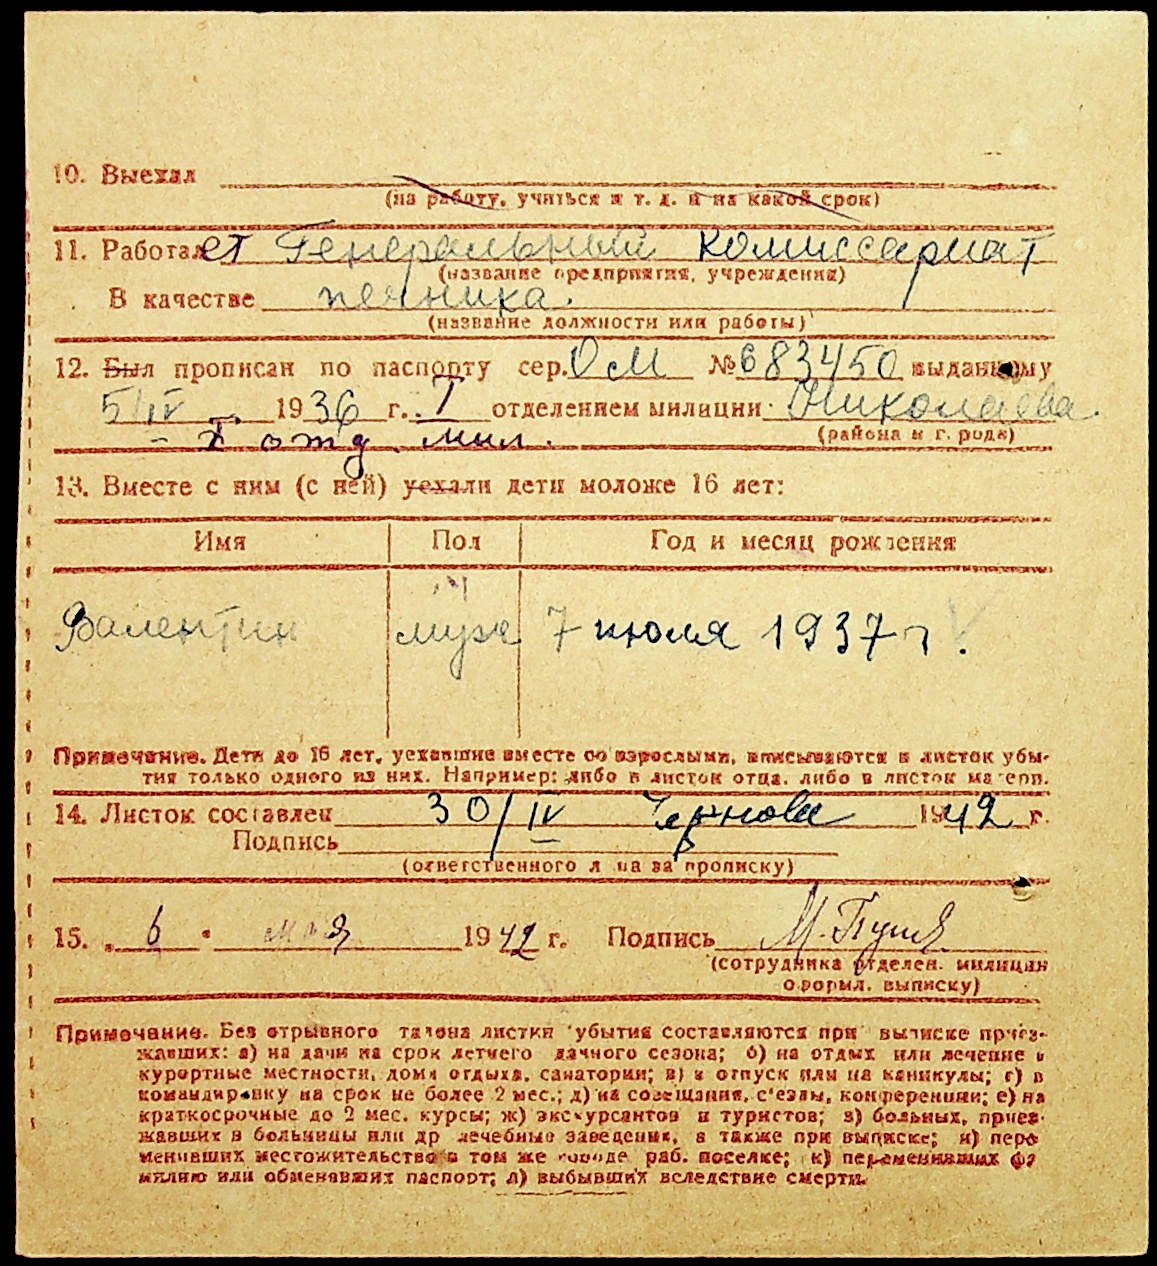 10. Выехал
(на работу, учиться и т. д. и на какой срок)
11. Работает Генеральный комиссариат
(название предприятия, учреждения)
В качестве печника.
(название должности или работы)
12. Был прописан по паспорту сер. ОМ № 683450 выданному
5/IV 1936 г. I отделением милиции Николаева.
I отд. мил. (района и города)
13. Вместе с ним (с ней) уехали дети моложе 16 лет:
Имя Пол Год и месяц рождения
Валентин муж 7 июля 1937 г.
Примечание. Дети до 16 лет, уехавшие вместе со взрослыми, вписываются в листок убы-
тия только одного из них. Например: либо в листок отца, либо в листок матери.
14. Листок составлен 30/IV Чернова 1942 г.
Подпись
(ответственного лица за прописку)
15. „ 6 " мая 1942 г. Подпись М.
(сотрудника отделен. милиции
оформл. выписку)
Примечание. Без отрывного талона листки убытия составляются при выписке приез-
жавших: а) на дачи на срок летнего дачного сезона; б) на отдых или лечение в
курортные местности, дома отдыха, санатории; в) в отпуск или на каникулы; г) в
командировку на срок не более 2 мес.; д) на совещания, с'езды, конференции; е) на
краткосрочные до 2 мес. курсы; ж) экскурсантов и туристов; з) больных, приез-
жавших в больницы или др лечебные заведения, а также при выписке; и) пере
менивших местожительство в том же городе раб. поселке; к) переменивших фа
милию или обменявших паспорт; л) выбывших вследствие смерти.